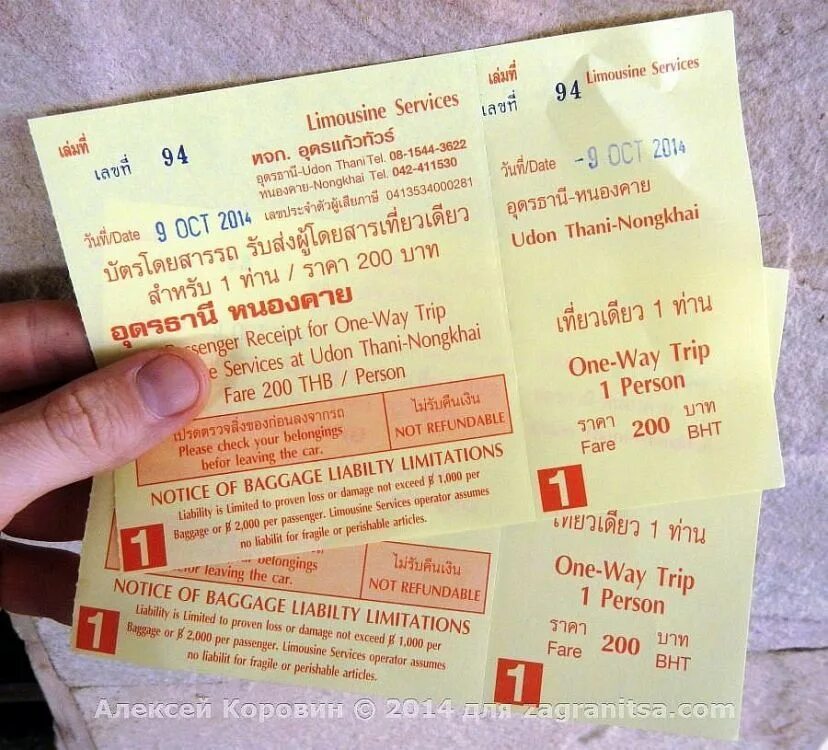 เล่มที่
เลขที่ 94
Limousine Services
หจก. อุดรแก้วทัวร์
อุดรธานี-Udon Thani Tel. 08-1544-3622
หนองคาย-Nongkhai Tel. 042-411530
เลขประจำตัวผู้เสียภาษี 0413534000281
วันที่/Date 9 OCT 2014
บัตรโดยสารรถ รับส่งผู้โดยสารเที่ยวเดียว
สำหรับ 1 ท่าน / ราคา 200 บาท
อุดรธานี หนองคาย
Passenger Receipt for One-Way Trip
Services at Udon Thani-Nongkhai
Fare 200 THB / Person
โปรดตรวจสิ่งของก่อนลงจากรถ
Please check your belongings
befor leaving the car.
ไม่รับคืนเงิน
NOT REFUNDABLE
NOTICE OF BAGGAGE LIABILTY LIMITATIONS
Liability is Limited to proven loss or damage not exceed ฿ 1,000 per
Baggage or ฿ 2,000 per passenger. Limousine Services operator assumes
no liabilit for fragile or perishable articles.
1
เล่มที่
เลขที่ 94
Limousine Services
วันที่/Date -9 OCT 2014
อุดรธานี-หนองคาย
Udon Thani-Nongkhai
เที่ยวเดียว 1 ท่าน
One-Way Trip
1 Person
ราคา 200 บาท
Fare BHT
1
belongings
befor leaving the car.
ไม่รับคืนเงิน
NOT REFUNDABLE
NOTICE OF BAGGAGE LIABILTY LIMITATIONS
Liability is Limited to proven loss or damage not exceed ฿ 1,000 per
Baggage or ฿ 2,000 per passenger. Limousine Services operator assumes
no liabilit for fragile or perishable articles.
1
เที่ยวเดียว 1 ท่าน
One-Way Trip
1 Person
ราคา 200 บาท
Fare BHT
1
Алексей Коровин © 2014 для zagranitsa.com